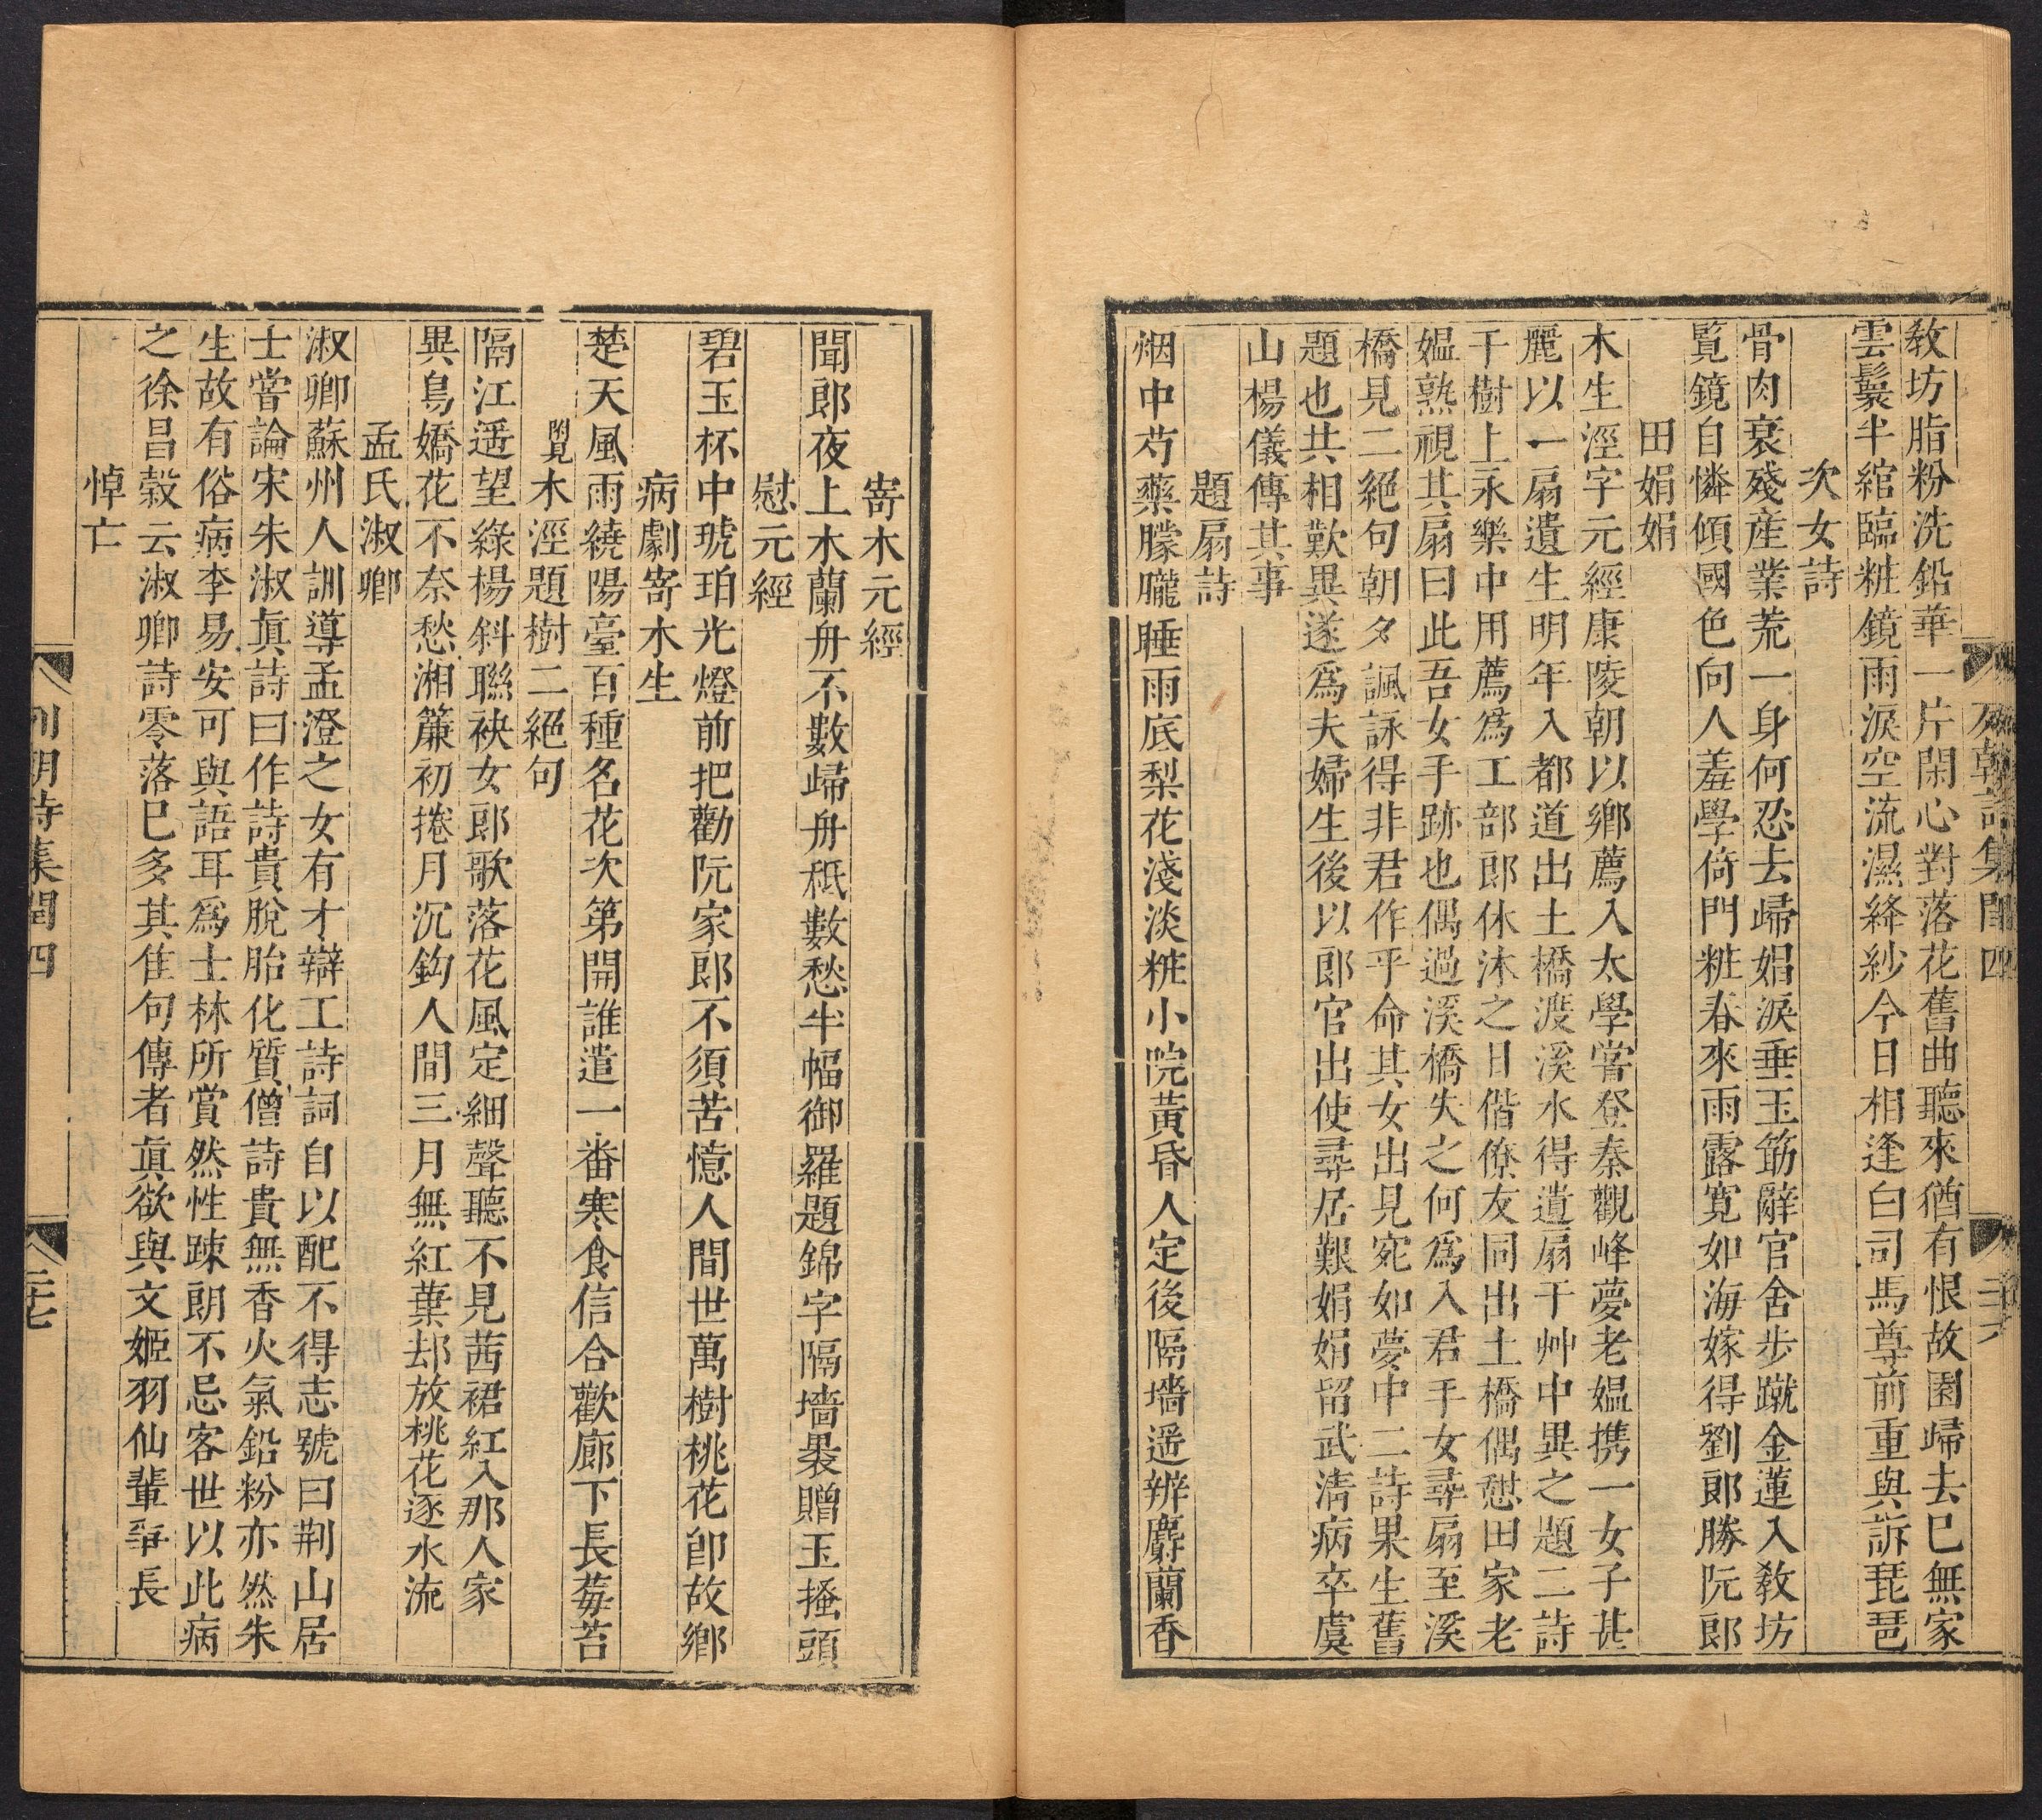 教坊脂粉洗鉛華一片閑心對落花舊曲聽來猶有恨故園歸去巳無家
雲鬟半綰臨粧鏡雨淚空流濕絳紗今日相逢白司馬尊前重與訴琵琶
次女詩
骨肉衰殘産業荒一身何忍去歸娼淚垂玉筯辭官舍步蹴金蓮入教坊
覧鏡自憐傾國色向人羞學倚門粧春來雨露寬如海嫁得劉郎勝阮郎
田娟娟
木生涇字元經康陵朝以鄉薦入太學嘗登秦觀峰夢老媼携一女子甚
麗以一扇遺生明年入都道出土橋渡溪水得遺扇于艸中異之題二詩
于樹上永樂中用薦爲工部郎休沐之日偕僚友同出土橋偶憇田家老
媼熟視其扇曰此吾女手跡也偶過溪橋失之何爲入君手女尋扇至溪
橋見二絕句朝夕諷詠得非君作乎命其女出見宛如夢中二詩果生舊
題也共相歎異遂爲夫婦生後以郎官出使尋居艱娟娟留武清病卒虞
山楊儀傳其事
題扇詩
烟中芍藥朦朧睡雨底梨花淺淡粧小院黃昏人定後隔墻遥辨麝蘭香
列朝詩集閏四
二十六
寄木元經
聞郎夜上木蘭舟不數歸舟秪數愁半幅御羅題錦字隔墻褁贈玉搔頭
慰元經
碧玉杯中琥珀光燈前把勸阮家郎不須苦憶人間世萬樹桃花卽故鄉
病劇寄木生
楚天風雨繞陽臺百種名花次第開誰遣一番寒食信合歡廊下長莓苔
附見木涇題樹二絕句
隔江遥望綠楊斜聯袂女郎歌落花風定細聲聽不見茜裙紅入那人家
異鳥嬌花不奈愁湘簾初捲月沉鈎人間三月無紅葉却放桃花逐水流
孟氏淑卿
淑卿蘇州人訓導孟澄之女有才辯工詩詞自以配不得志號曰荆山居
士嘗論宋朱淑眞詩曰作詩貴脫胎化質僧詩貴無香火氣鉛粉亦然朱
生故有俗病李易安可與語耳爲士林所賞然性踈朗不忌客世以此病
之徐昌榖云淑卿詩零落巳多其佳句傳者眞欲與文姬羽仙輩爭長
悼亡
列朝詩集閏四
二十七